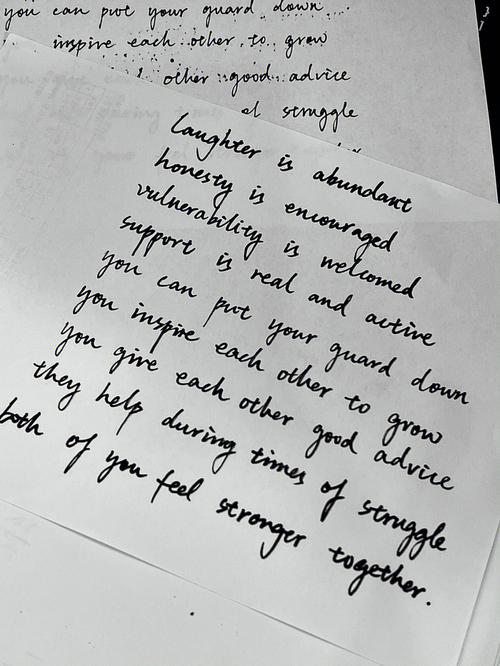 you can put your guard down
inspire each other to grow
other good advice
struggle
laughter is abundant
honesty is encouraged
vulnerability is welcomed
support is real and active
you can put your guard down
you inspire each other to grow
you give each other good advice
they help during times of struggle
both of you feel stronger together.